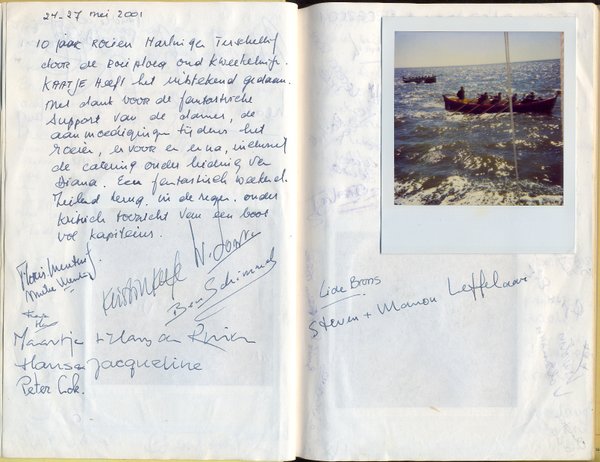 24-27 mei 2001
10 jaar roeien Harlingen Terschelling
door de roeiploeg oud Kweekelingen.
KAATJE Heeft het uitstekend gedaan.
Met dank voor de fantastische
support van de dames, de
aanmoedigingen tijdens het
roeien, ervoor en erna, inclusief
de catering onder leiding van
Diana. Een fantastisch weekend.
Zeilend terug. in de regen. onder
kritisch toezicht van een boot
vol kapiteins.
Ben Schimmel
Maartje + Hans de
Hans en Jacqueline
Peter Cok.
Lide Brons
Steven + Manon Leffelaar